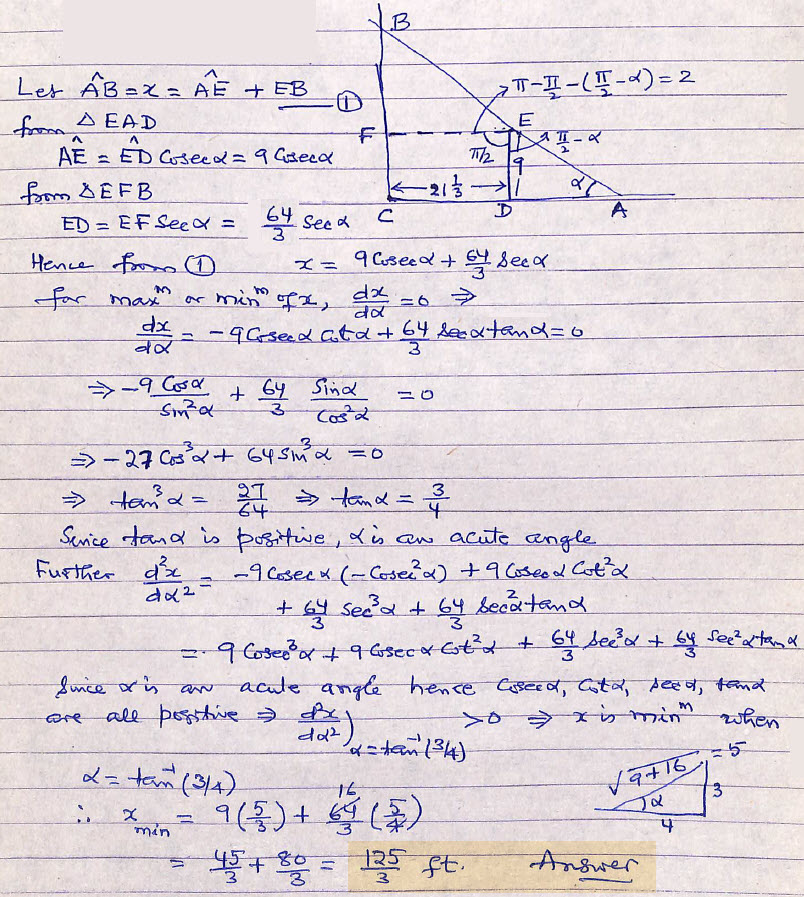 B
Let ÂB = x = ÂE + EB ①
π - π/2 - (π/2 - α) = 2
from △ EAD
F
E
π/2
π/2 - α
ÂE = ÊD Cosecα = 9 Cosecα
9
from △EFB
21 1/3
α
C
D
A
ED = EF Sec α = 64/3 Sec α
Hence from ① x = 9 Cosecα + 64/3 Sec α
for maxᵐ or minᵐ of x, dx/dα = 0 ⇒
dx/dα = - 9 Cosecα Cotα + 64/3 Sec α tanα = 0
⇒ -9 Cosα/Sin²α + 64/3 Sinα/Cos²α = 0
⇒ - 27 Cos³α + 64 Sin³α = 0
⇒ tan³α = 27/64 ⇒ tanα = 3/4
Since tanα is positive, α is an acute angle
Further d²x/dα² = -9 Cosec α (-Cosec²α) + 9 Cosec α Cot²α
+ 64/3 Sec³α + 64/3 Sec²α tanα
= 9 Cosec³α + 9 Cosec α Cot²α + 64/3 Sec³α + 64/3 Sec²α tan α
Since α is an acute angle hence Cosecα, Cotα, secα, tanα
are all positive ⇒ d²x/dα²) α = tan⁻¹(3/4) > 0 ⇒ x is minᵐ when
α = tan⁻¹(3/4)
√9+16 = 5
3
α
4
∴ x min = 9(5/3) + 64/3 (5/4)
16
= 45/3 + 80/3 = 125/3 ft. Answer